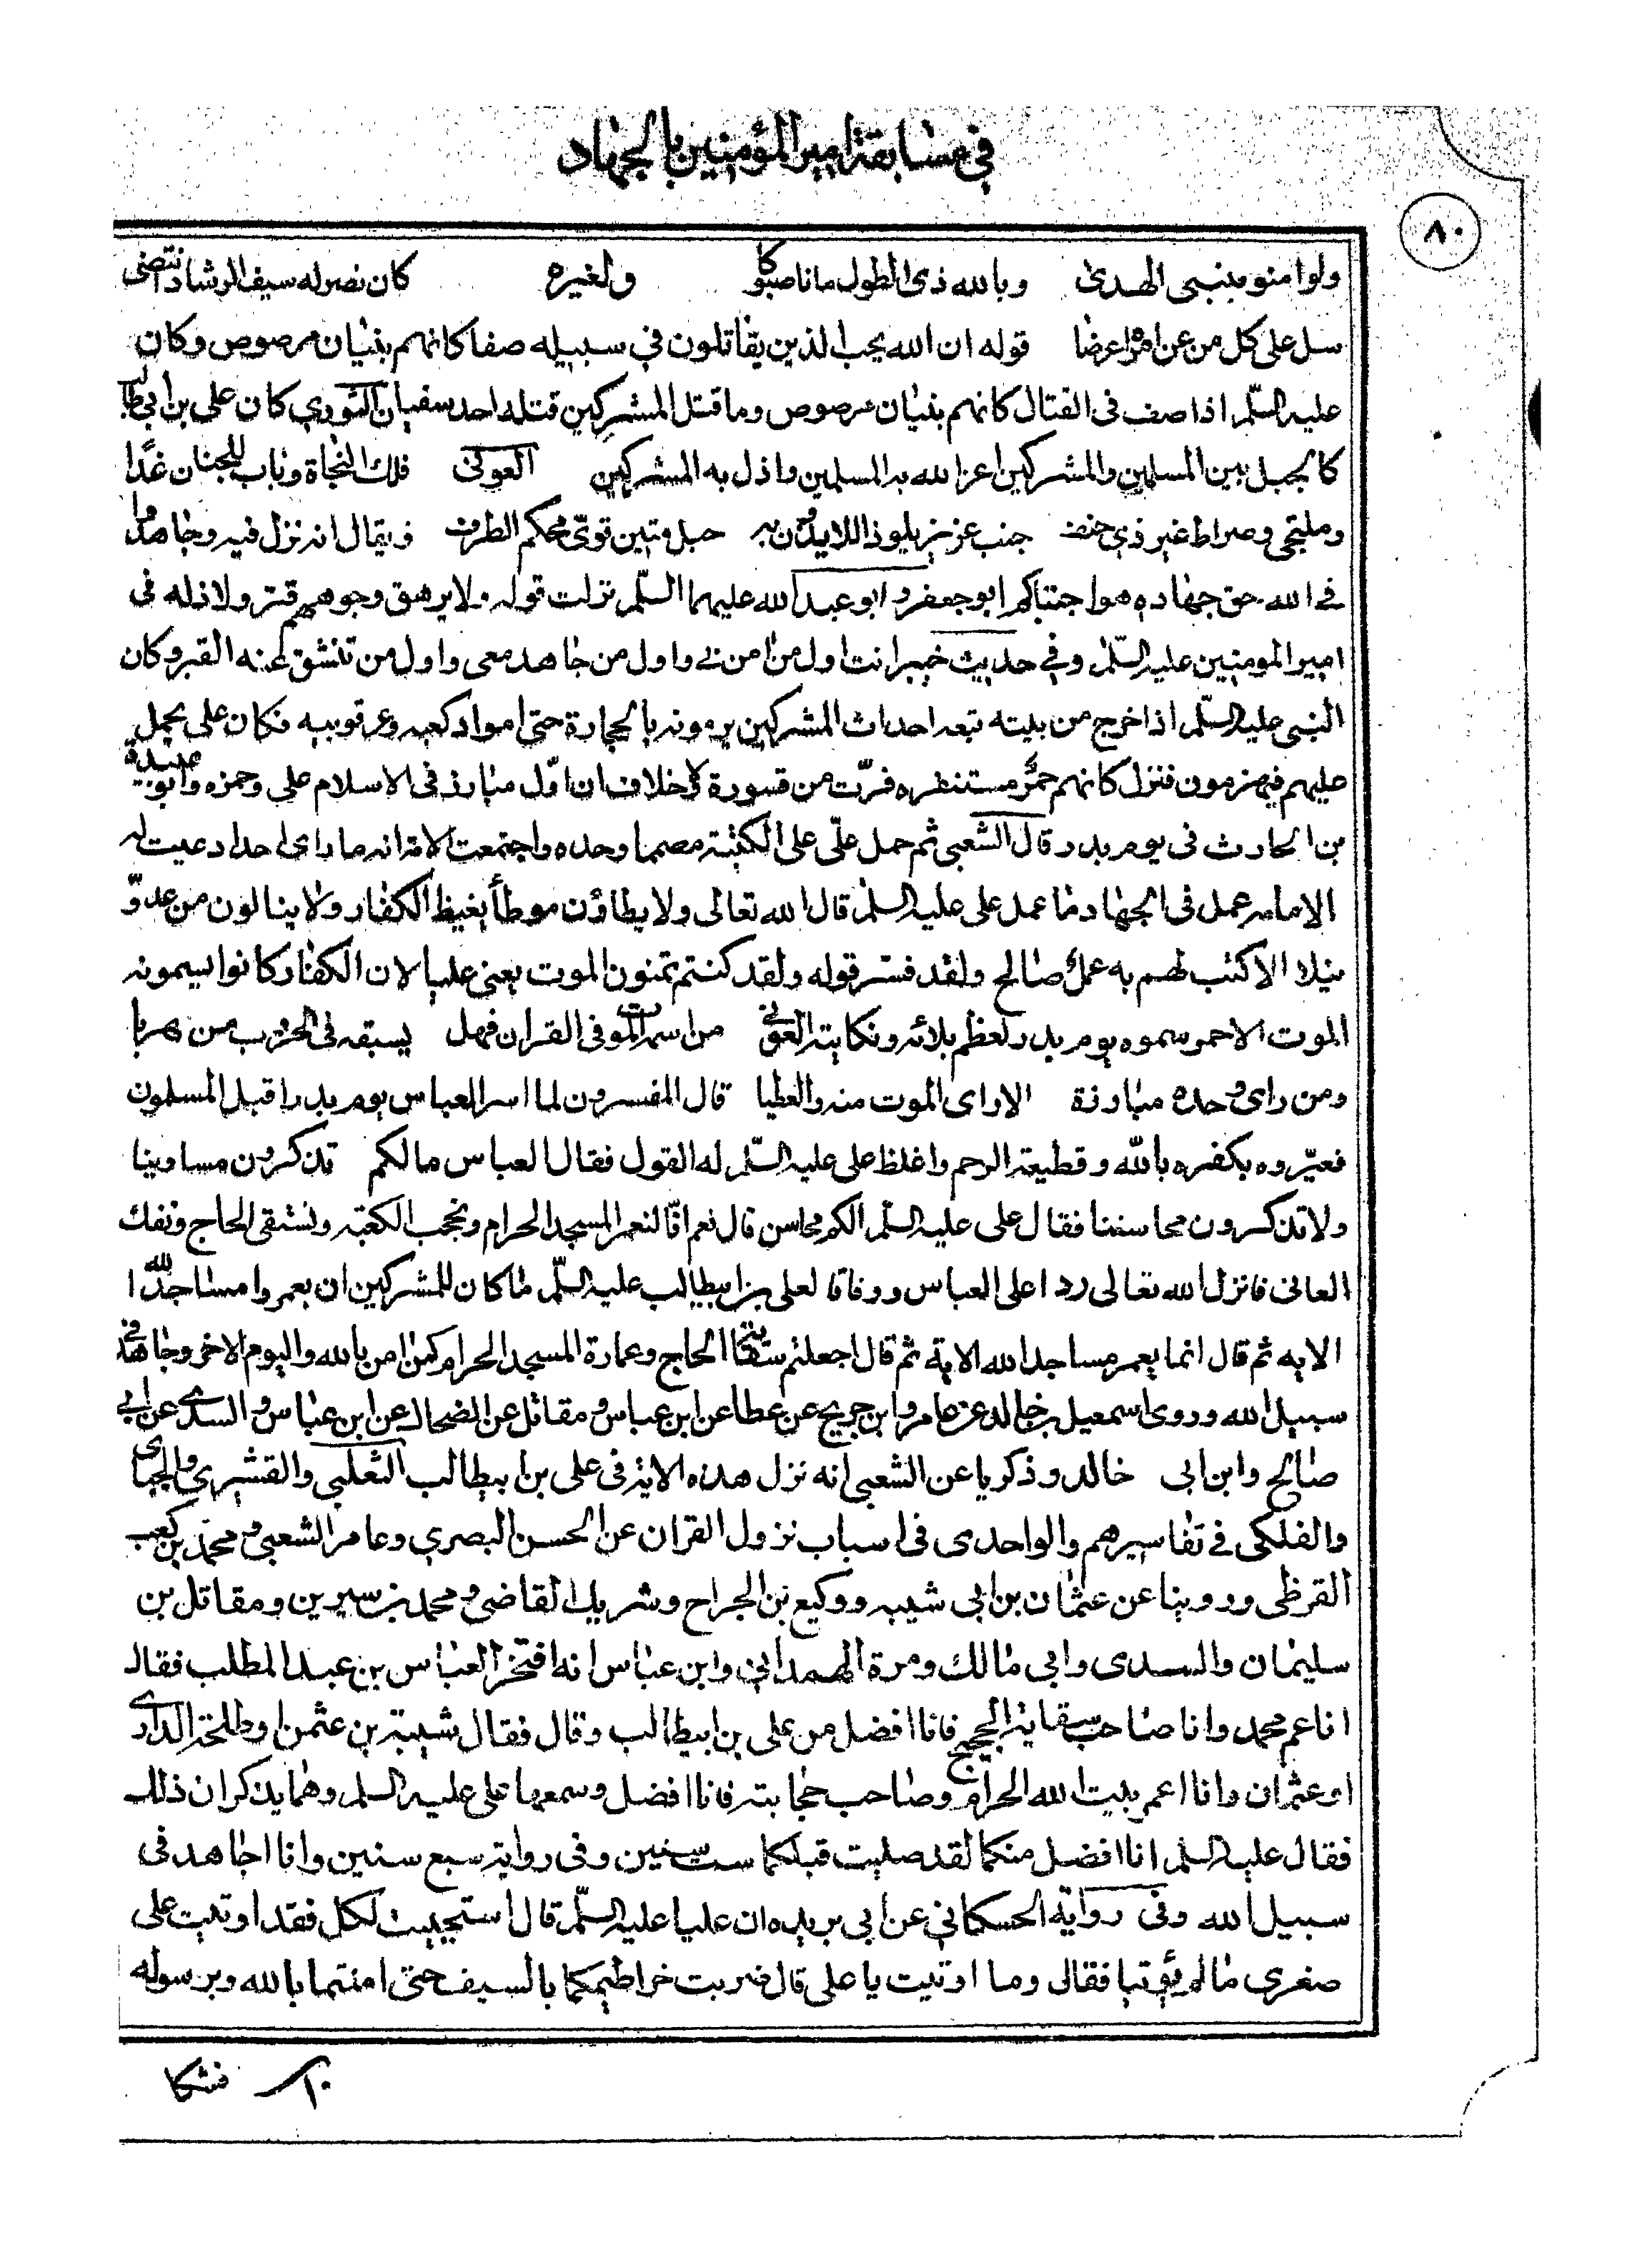 في مسابقة امير المؤمنين بالجهاد
٨٠
ولو امنو بنبي الهدى وبالله ذى الطول ما ناصبوكا ولغيره كان نصر له سيف الرشاد انتضى
سل على كل من عن امره اعرضا قوله ان الله يحب الذين يقاتلون في سبيله صفا كانهم بنيان مرصوص وكان
عليه السلّم اذا صف فى القتال كانهم بنيان مرصوص وما قتل المشركين قتله احد سفيان الثوري كان على بن ابى طالب
كالجبل بين المسلمين والمشركين اعز الله به المسلمين واذل به المشركين العونى فلك النجاة وباب للجنان غدًا
وملتجى وصراط غير ذي جنف جنب عزيز يلوذ اللايذون به حبل متين قوىّ محكم الطرف ويقال انه نزل فيه وجاهدوا
فے الله حق جهاده هو اجتباكم ابو جعفر و ابو عبد الله عليهما السلّم نزلت قوله ولا يرهق وجوههم قتر ولا ذله فى
امير المومنين عليه السلّم وفي حديث خيبر انت اول من امن بے واول من جاهد معى واول من تنشق عنه القبر وكان
النبى عليه السلّم اذا خرج من بيته تبعه احداث المشركين يرمونه بالحجارة حتى ادموا كعبه وعرقوبيه فكان على يحمل
عليهم فيهزمون فنزل كانهم حمر مستنفره فرّت من قسورة لا خلاف ان اوّل مبارز فى الاسلام على وحمزه وابو عبيدة
بن الحارث فى يوم بدر قال الشعبى ثم حمل علىّ على الكتيبة مصمما وحده واجتمعت الامة انه ما راى احد ادعيت له
الامامه عمل فى الجهاد ما عمل على عليه السلّم قال الله تعالى ولا يطاؤن موطأ يغيظ الكفار ولا ينالون من عدوّ
نيلا الا كتب لهم به عمل صالح ولقد فسر قوله ولقد كنتم تمنون الموت يعنى عليا لان الكفار كانوا يسمونه
الموت الاحمر سموه يوم بدر لعظم بلائه ونكايته العونى من اسمه الموت فى القران فهل يسبقه فى الحروب من هربا
ومن راى وحده مبارزة الا راى الموت منه والعطبا قال المفسرون لما اسر العباس يوم بدر اقبل المسلمون
فعيّروه بكفره بالله وقطيعة الرحم واغلظ على عليه السلّم له القول فقال العباس مالكم تذكرون مساوينا
ولا تذكرون محاسننا فقال على عليه السلّم الكم محاسن قال نعم انّا لنعمر المسجد الحرام ونحجب الكعبة ونستقى الحاج ونفك
العانى فانزل الله تعالى ردا على العباس ووفاقا لعلى بن ابيطالب عليه السلّم ما كان للمشركين ان يعمروا مساجد الله
الايه ثم قال انما يعمر مساجد الله الاية ثم قال اجعلتم سقاية الحاج وعمارة المسجد الحرام كمن امن بالله واليوم الاخر وجاهد فى
سبيل الله وروى اسمعيل بن خالد عن عامر وابن جريج عن عطا عن ابن عباس ومقاتل عن الضحاك عن ابن عباس والسدي عن ابى
صالح وابن ابى خالد وذكريا عن الشعبى انه نزل هذه الاية فى على بن ابيطالب الثعلبي والقشيري والجبائى
والفلكى فے تفاسيرهم والواحدى فى اسباب نزول القران عن الحسن البصري وعامر الشعبي ومحمد بن كعب
القرظى وروينا عن عثمان بن ابي شيبه ووكيع بن الجراح وشريك القاضى ومحمد بن سيرين ومقاتل بن
سليمان والسدى وابى مالك ومرة الهمداني وابن عباس انه افتخر العباس بن عبد المطلب فقال
انا عم محمد وانا صاحب سقاية الحجيج فانا افضل من على بن ابيطالب وقال فقال شيبة بن عثمن او طلحة الدارى
او عثمان وانا اعمر بيت الله الحرام وصاحب حجابته فانا افضل وسمعهما على عليه السلم وهما يذكران ذلك
فقال عليه السلم انا افضل منكما لقد صليت قبلكما ست سنين وفى رواية سبع سنين وانا اجاهد فى
سبيل الله وفى رواية الحسكاني عن ابي بريده ان عليا عليه السلّم قال استجيبت لكل فقد اوتيت على
صغرى ما لم يؤتيا فقالا وما اوتيت يا على قال ضربت خراطيمكما بالسيف حتى امنتما بالله وبرسوله
فشكا